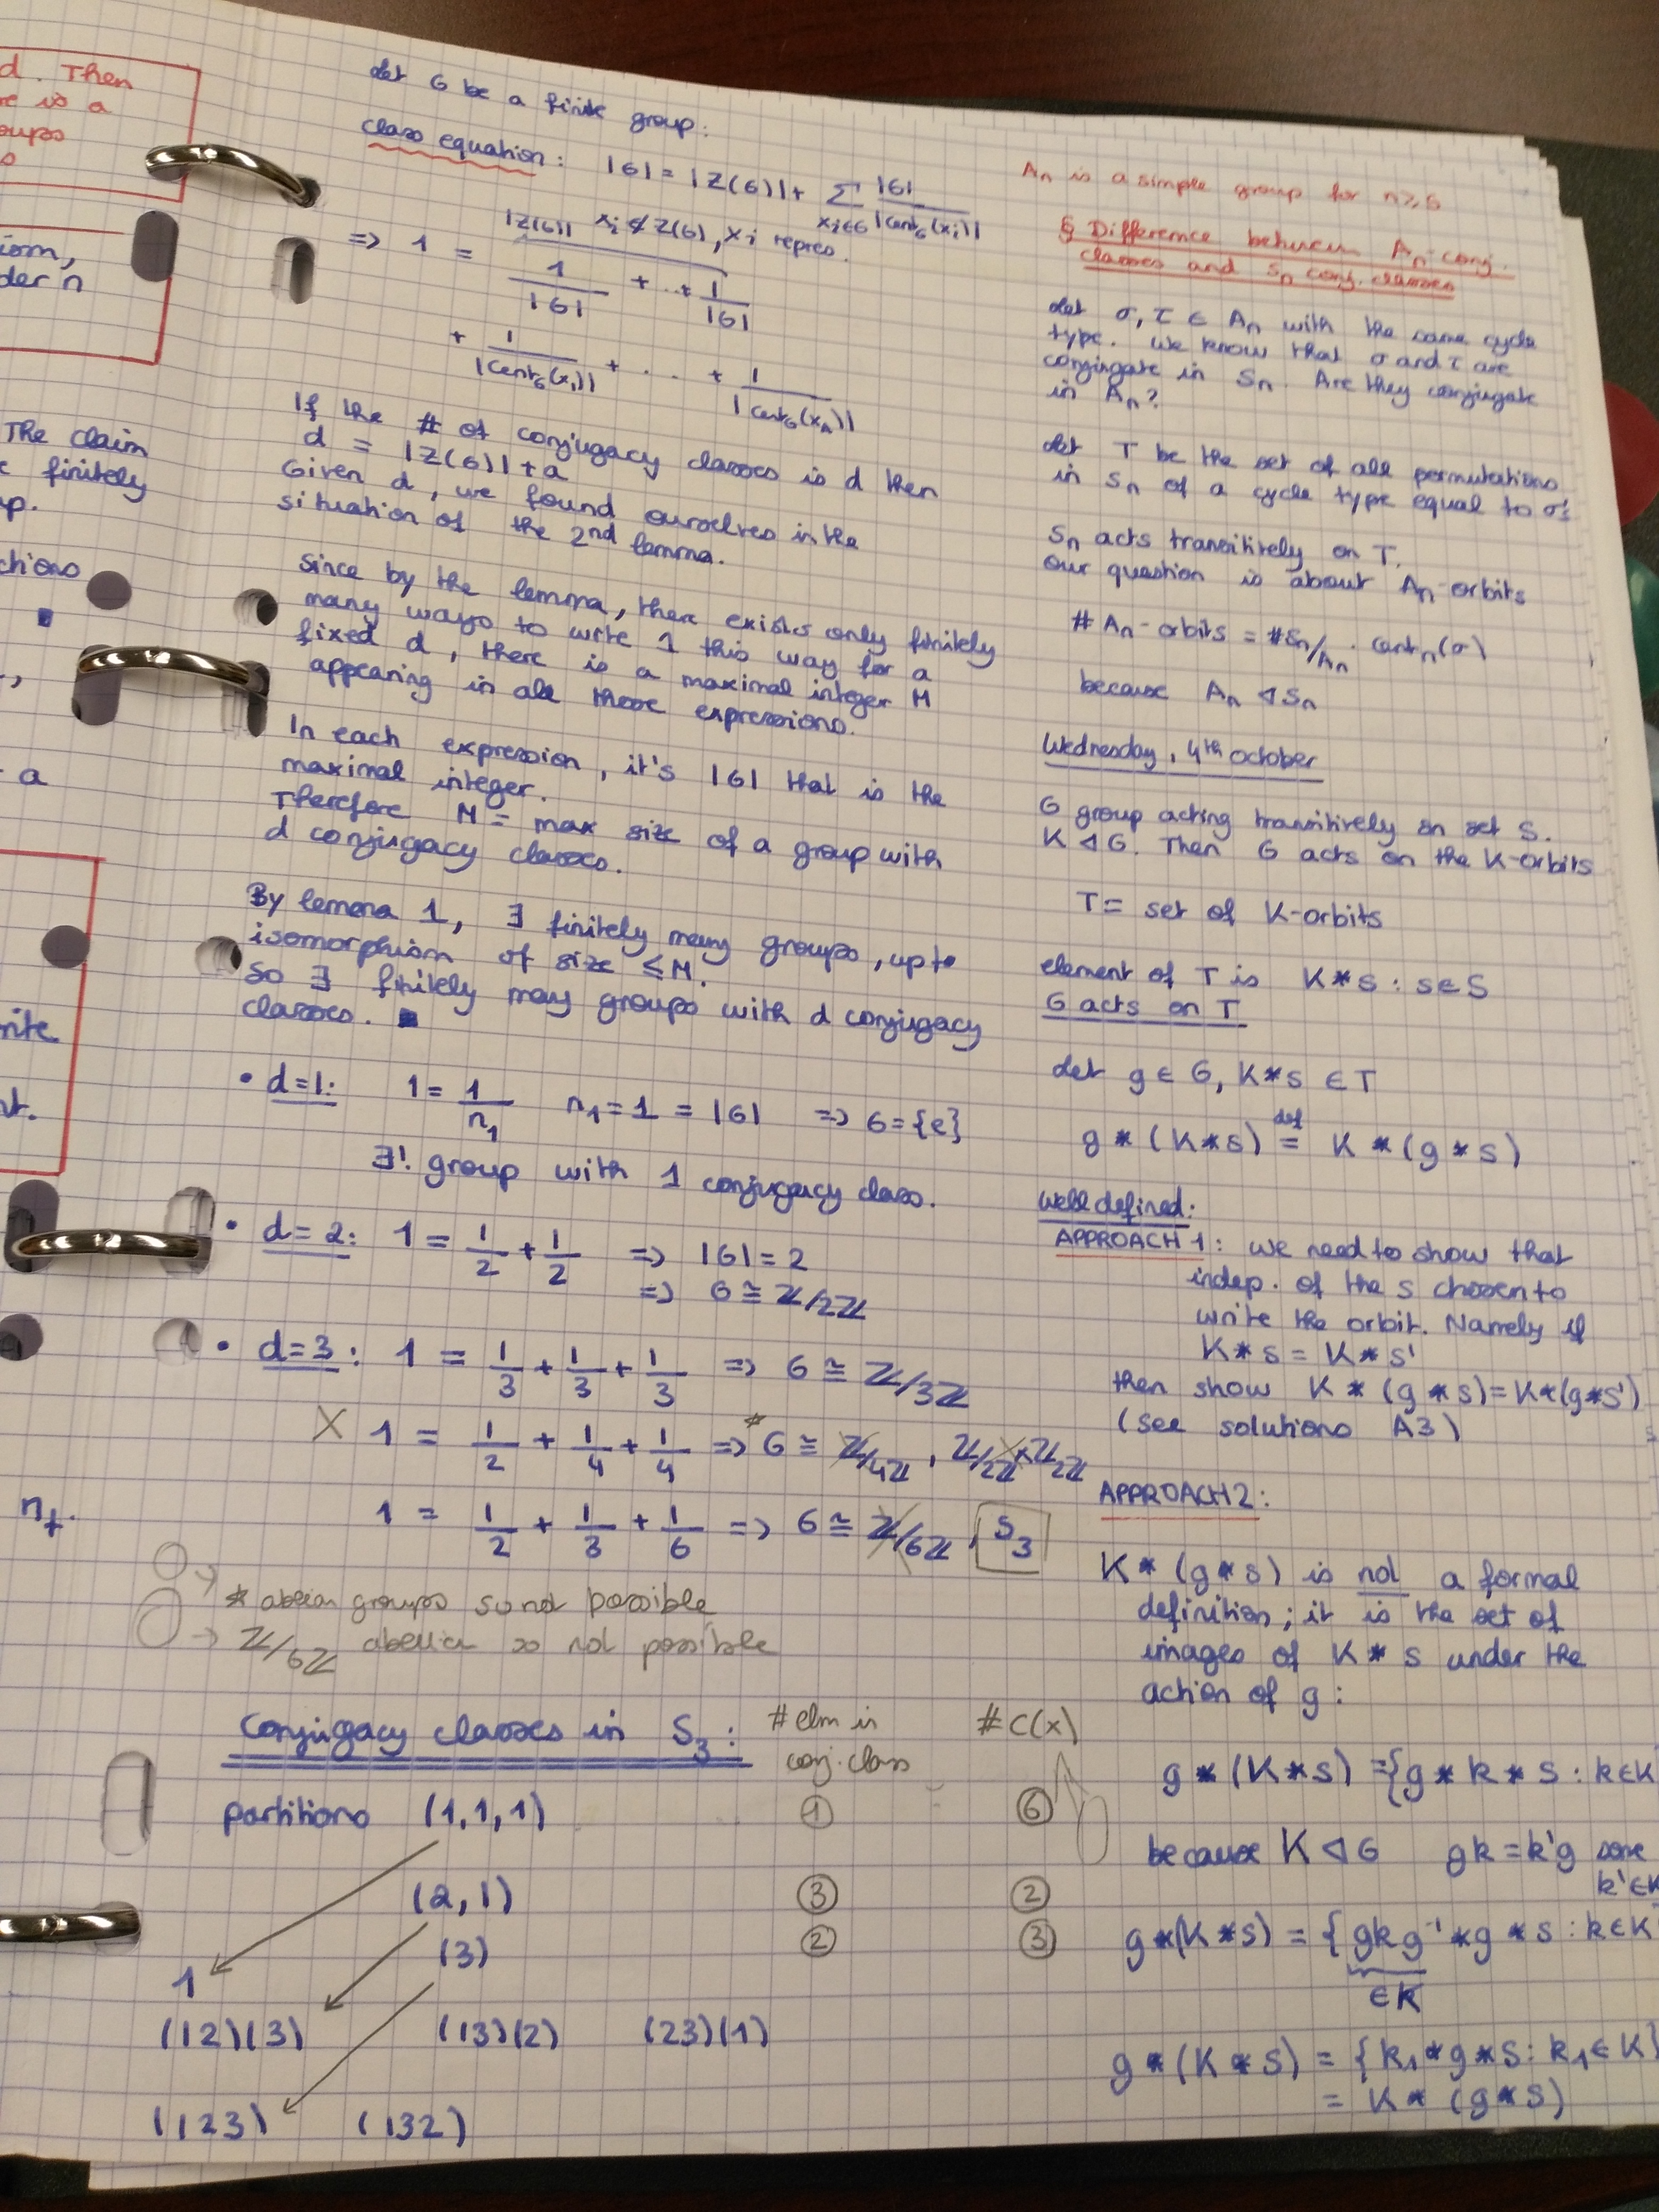 d. Then
re is a
oups
iom,
der n
The claim
finitely
up.
ctions
a
rite
nt.
n_t.
Let G be a finite group:
class equation: |G| = |Z(G)| + Σ |G| / |Cent_G(x_i)|
x_i ∈ G
x_i ∉ Z(G), x_i repres.
|Z(G)|
=> 1 = 1/|G| + ... + 1/|G|
+ 1/|Cent_G(x_1)| + ... + 1/|Cent_G(x_a)|
If the # of conjugacy classes is d then
d = |Z(G)| + a
Given d, we found ourselves in the
situation of the 2nd lemma.
Since by the lemma, there exists only finitely
many ways to write 1 this way for a
fixed d, there is a maximal integer M
appearing in all those expressions.
In each expression, it's |G| that is the
maximal integer.
Therefore M = max size of a group with
d conjugacy classes.
By lemma 1, ∃ finitely many groups, up to
isomorphism of size ≤ M.
So ∃ finitely may groups with d conjugacy
classes. ■
• d=1: 1 = 1/n_1 n_1 = 1 = |G| => G = {e}
∃! group with 1 conjugacy class.
• d=2: 1 = 1/2 + 1/2 => |G| = 2
=> G ≅ ℤ/2ℤ
• d=3: 1 = 1/3 + 1/3 + 1/3 => G ≅ ℤ/3ℤ
X 1 = 1/2 + 1/4 + 1/4 =>* G ≅ ℤ/4ℤ, ℤ/2ℤ × ℤ/2ℤ
1 = 1/2 + 1/3 + 1/6 => G ≅ ℤ/6ℤ, S_3
* abelian groups so not possible
→ ℤ/6ℤ abelian so not possible
Conjugacy classes in S_3: # elm in conj. class # C(x)
partitions (1,1,1) 1 6
(2,1) 3 2
(3) 2 3
1
(12)(3) (13)(2) (23)(1)
(123) (132)
A_n is a simple group for n ≥ 5
§ Difference between A_n-conj.
classes and S_n conj. classes
Let σ, τ ∈ A_n with the same cycle
type. We know that σ and τ are
conjugate in S_n. Are they conjugate
in A_n?
Let T be the set of all permutations
in S_n of a cycle type equal to σ's
S_n acts transitively on T.
Our question is about A_n orbits
# A_n-orbits = # S_n/A_n · cent_n(σ)
because A_n ◁ S_n
Wednesday, 4th October
G group acting transitively on set S.
K ◁ G. Then G acts on the K-orbits
T = set of K-orbits
element of T is K*s : s∈S
G acts on T
Let g ∈ G, K*s ∈ T
g * (K*s) def= K * (g*s)
Well defined:
APPROACH 1: we need to show that
indep. of the s chosen to
write the orbit. Namely if
K*s = K*s'
then show K * (g*s) = K*(g*s')
(see solutions A3)
APPROACH 2:
K* (g*s) is not a formal
definition; it is the set of
images of K*s under the
action of g:
g*(K*s) = {g*k*s : k∈K
because K ◁ G gk = k'g some
k'∈K
g*(K*s) = {gkg⁻¹*g*s : k∈K
∈K
g*(K*s) = {k_1*g*s : k_1∈K}
= K* (g*s)